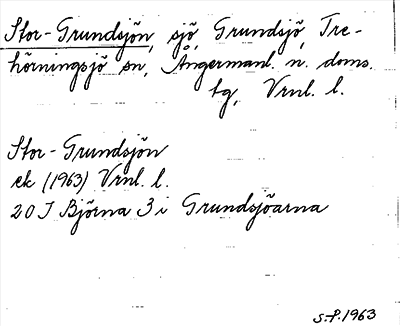 Stor-Grundsjön, sjö, Grundsjö, Tre-
hörningsjö sn, Ångermanl. n. doms.
tg, Vrnl. l.
Stor-Grundsjön
ek (1963) Vrnl. l.
20 J Björna 3 i Grundsjöarna
S-P. 1963